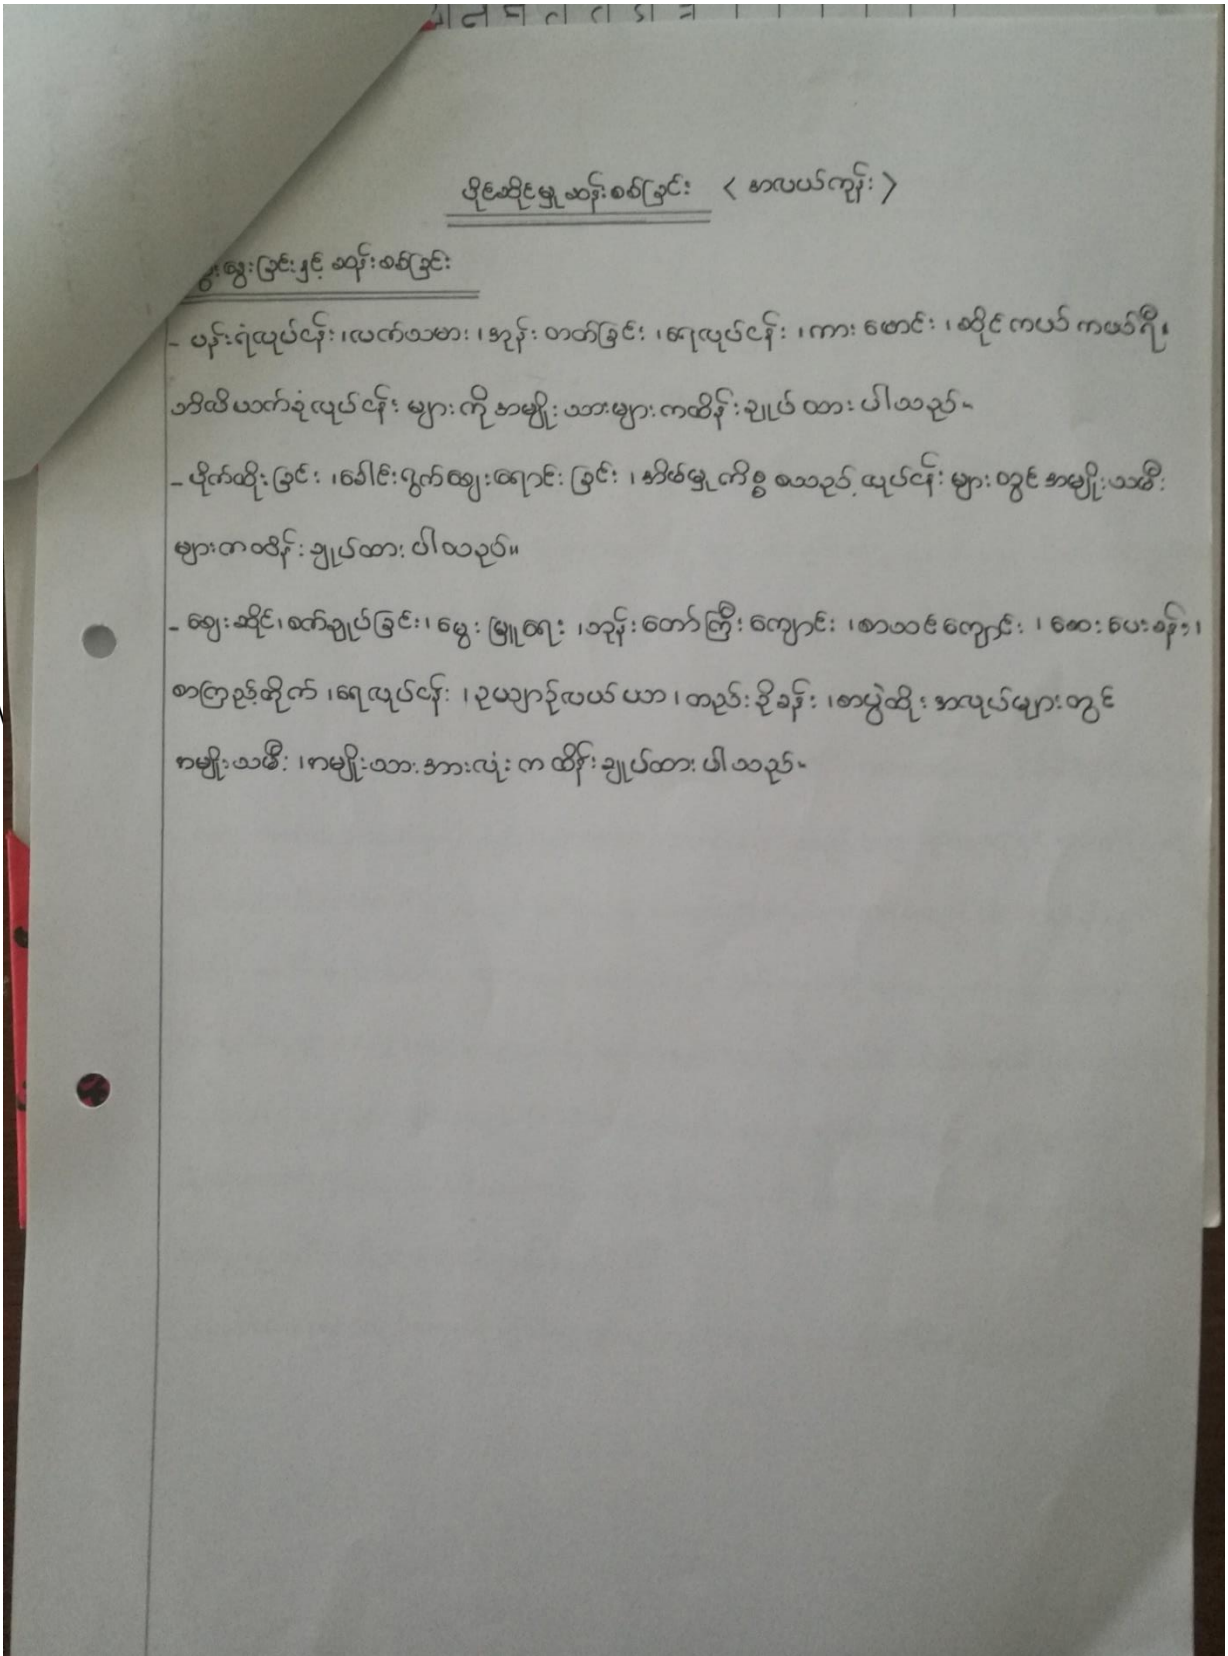 ပိုင်ဆိုင်မှုဆန်းစစ်ခြင်း < အလယ်ကုန်း >
နွေးခြင်းနှင့် ဆန်းစစ်ခြင်း
- ပန်းရံလုပ်ငန်း ၊လက်သမား ၊အုန်းတတ်ခြင်း ၊ရေလုပ်ငန်း ၊ကားမောင်း ၊ဆိုင်ကယ်ကယ်ရီ၊
ဘိလိယက်ခုံလုပ်ငန်းများကို အမျိုးသားများကထိန်းချုပ်ထားပါသည်။
- ပိုက်ထိုးခြင်း ၊ခေါင်းရွက်ဈေးရောင်းခြင်း ၊အိမ်မှုကိစ္စ စသည့်လုပ်ငန်းများတွင်အမျိုးသမီး
များကထိန်းချုပ်ထားပါသည်။
- ဈေးဆိုင်၊စက်ချုပ်ခြင်း၊မွေးမြူရေး ၊ဘုန်းတော်ကြီးကျောင်း ၊စာသင်ကျောင်း ၊ဆေးပေးခန်း၊
စာကြည့်တိုက် ၊ရေလုပ်ငန်း ၊ဥယျာဉ်လယ်ယာ ၊တည်းခိုခန်း ၊စားပွဲထိုး အလုပ်များတွင်
အမျိုးသမီး ၊အမျိုးသားအားလုံးက ထိန်းချုပ်ထားပါသည်။